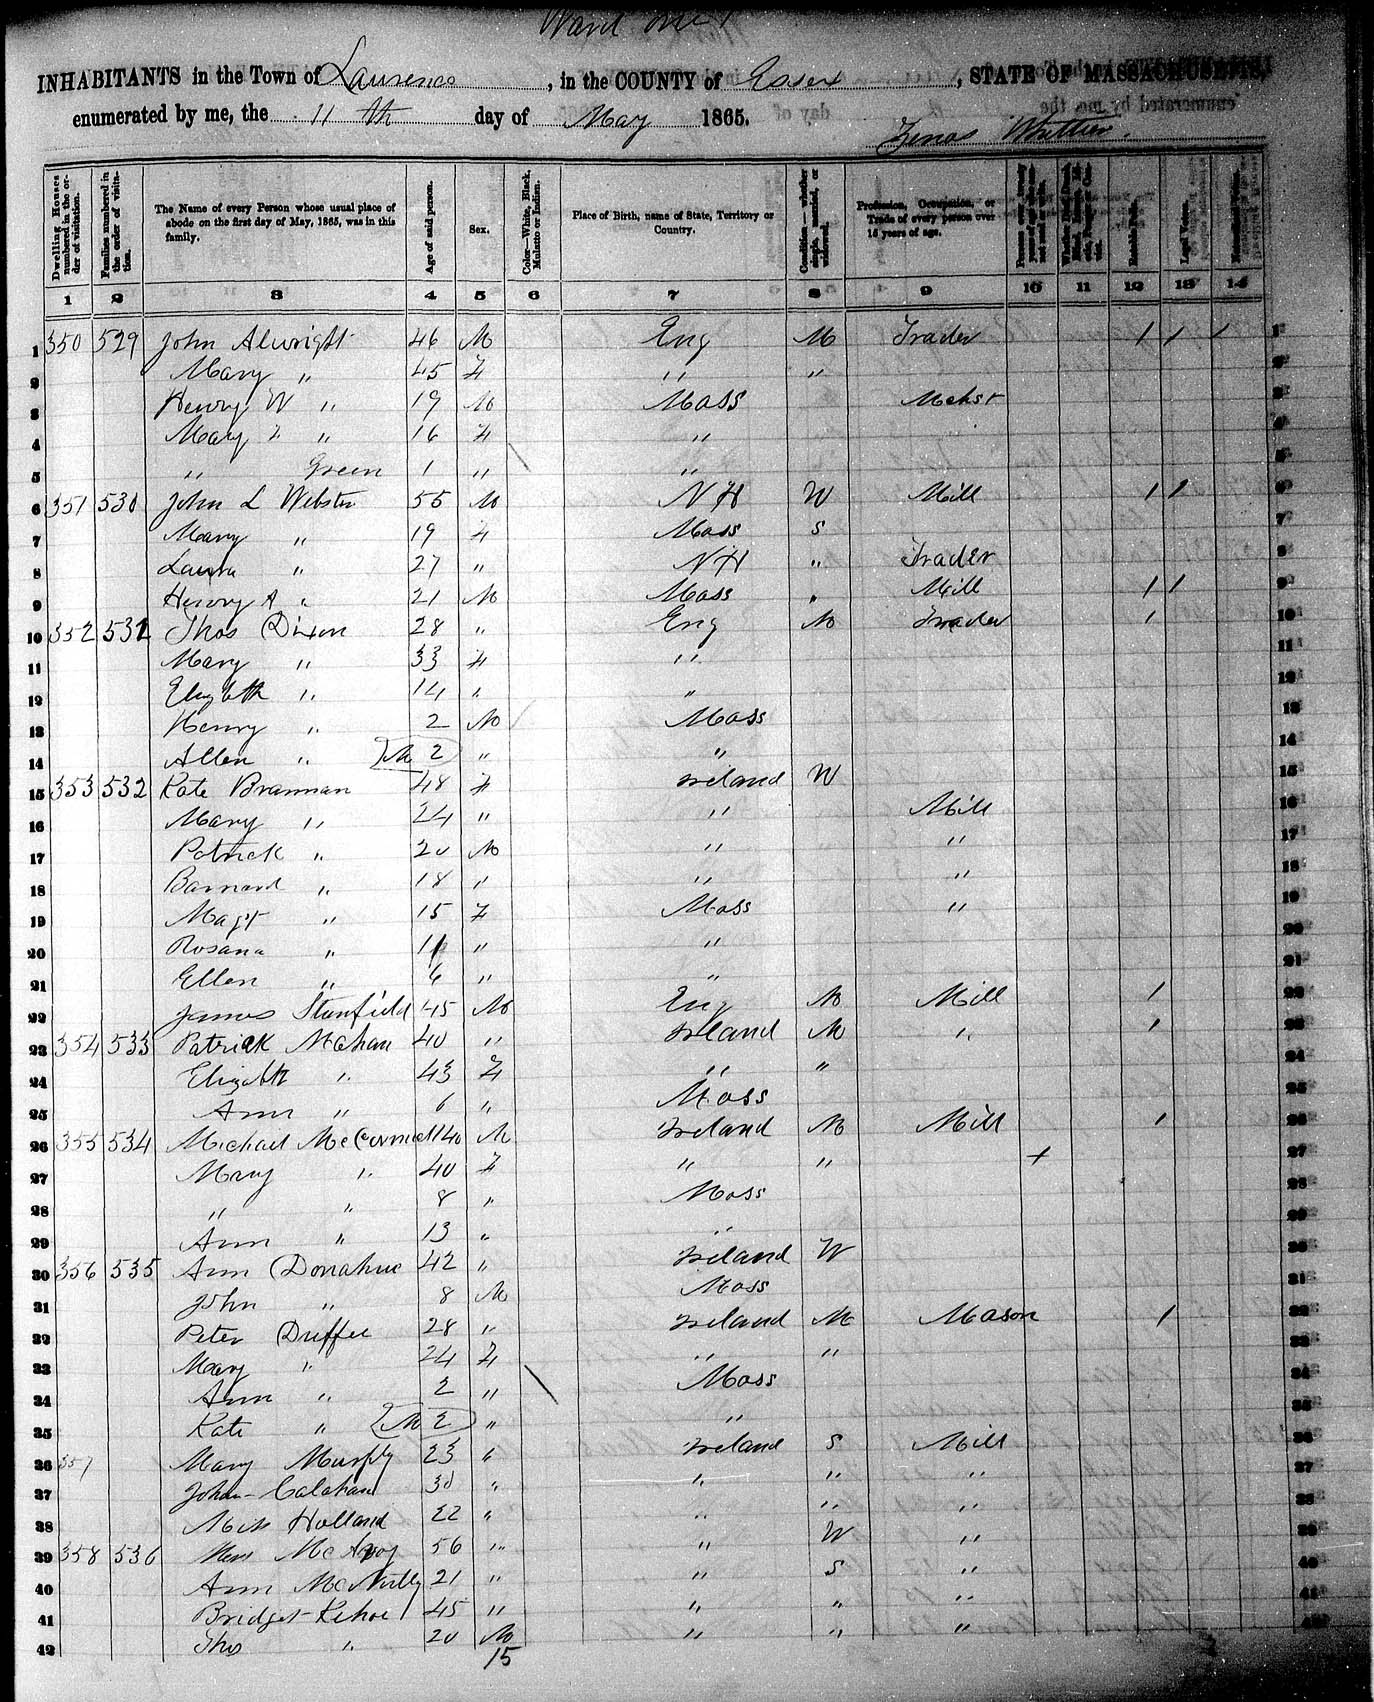 Ward one
INHABITANTS in the Town of Lawrence, in the COUNTY of Essex, STATE OF MASSACHUSETTS,
enumerated by me, the 11 th day of May 1865.
Zenas Whittier.
Dwelling Houses numbered in the order of visitation. Families numbered in the order of visitation. The Name of every Person whose usual place of abode on the first day of May, 1865, was in this family. Age of said person. Sex. Color—White, Black, Mulatto or Indian. Place of Birth, name of State, Territory or Country. Condition—whether single, married, or widowed. Profession, Occupation, or Trade of every person over 15 years of age. Ratable Polls. Legal Voters.
1 2 3 4 5 6 7 8 9 10 11 12 13 14
1 350 529 John Alwright 46 M Eng M Trader 1 1 1 1
2 Mary " 45 F " " 2
3 Henry W " 19 M Mass 3
4 Mary " 16 F " 4
5 " Green 1 " " 5
6 351 530 John L Webster 55 M N H W Mill 1 1 6
7 Mary " 19 F Mass S 7
8 Laura " 27 " N H " Trader 8
9 Henry A " 21 M Mass " Mill 1 1 9
10 352 531 Thos Dixon 28 " Eng M Trader 1 10
11 Mary " 33 F " 11
12 Elizbth " 14 " " 12
13 Henry " 2 M Mass 13
14 Allen " 2 " " 14
15 353 532 Kate Brannan 48 F Ireland W 15
16 Mary " 24 " " Mill 16
17 Patrick " 20 M " " 17
18 Barnard " 18 " " " 18
19 Magt " 15 F Mass " 19
20 Rosana " " " 20
21 Ellen " 6 " " 21
22 James Stanfield 45 M Eng M Mill 1 22
23 354 533 Patrick McChan 40 " Ireland M " 1 23
24 Elizabth " 43 F " " 24
25 Ann " 6 " Mass 25
26 355 534 Michael McCormick 40 M Ireland M Mill 1 26
27 Mary " 40 F " " + 27
28 " " 8 " Mass 28
29 Ann " 13 " " 29
30 356 535 Ann Donahue 42 " Ireland W 30
31 John " 8 M Mass 31
32 Peter Duffee 28 " Ireland M Mason 1 32
33 Mary " 24 F " " 33
34 Ann " 2 " Mass 34
35 Kate " 2 " " 35
36 357 Mary Murphy 23 " Ireland S Mill 36
37 Johan Calahan 30 " " " " 37
38 Holland 22 " " " " 38
39 358 536 McAvoy 56 " " W " 39
40 Ann McNulty 21 " " S " 40
41 Bridget Kehoe 45 " " " " 41
42 Thos " 20 M " " " 42
15